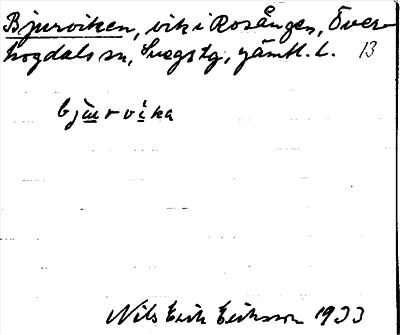 Bjurviken, vik i Rosången, Över-
hogdals sn, Svegs tg, Jämtl. l. 13
bju̲rvi̲ka
Nils Erik Eriksson 1933